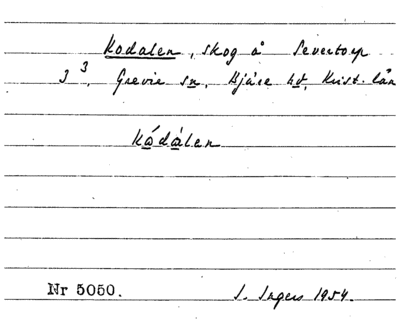 Kodalen, skog å Severtorp
3³. Grevie sn, Bjäre hd, Krist. län
kådålen
Nr 5050.
S. Ingers 1954.